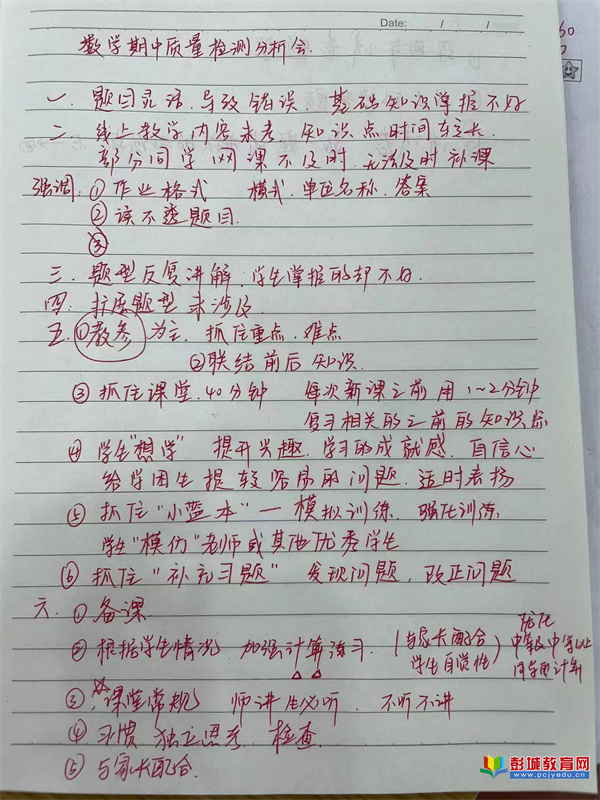 Date: / /
数学期中质量检测分析会.
一. 题目灵活.导致错误 基础知识掌握不好
二. 线上教学内容未考 知识点时间较长
部分同学网课不及时.无法及时补课
强调: ①作业格式 横式.单位名称.答案
②读不透题目.
③
三. 题型反复讲解.学生掌握的却不好.
四. 扩展题型 未涉及.
五. ①教参为主. 抓住重点.难点
②联结前后知识.
③ 抓住课堂.40分钟 每次新课之前用1~2分钟
复习相关的之前的知识点
④ 学生"想学" 提升兴趣.学习的成就感.自信心
给学困生提较容易的问题.适时表扬
⑤ 抓住"小蓝本"—模拟训练. 强化训练
学生"模仿"老师或其他优秀学生
⑥ 抓住"补充习题" 发现问题.改正问题
六. ①备课
②根据学生情况 加强计算练习. (与家长配合 学生自觉性)
中等及中等以上
同学的计算
③ 课堂常规 师讲生必听. 不听不讲
④ 习惯 独立思考. 检查.
⑤ 与家长配合.
彭城教育网
www.pcjyedu.cn